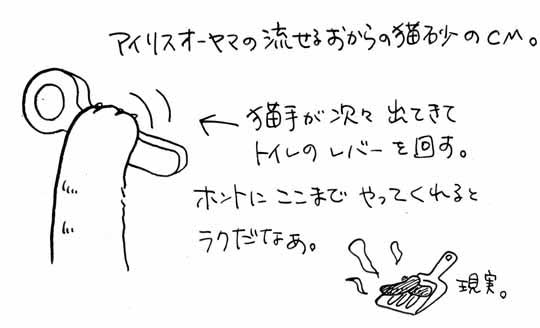 アイリスオーヤマの流せるおからの猫砂のCM。
← 猫手が次々出てきて
トイレのレバーを回す。
ホントにここまでやってくれると
ラクだなぁ。
現実。